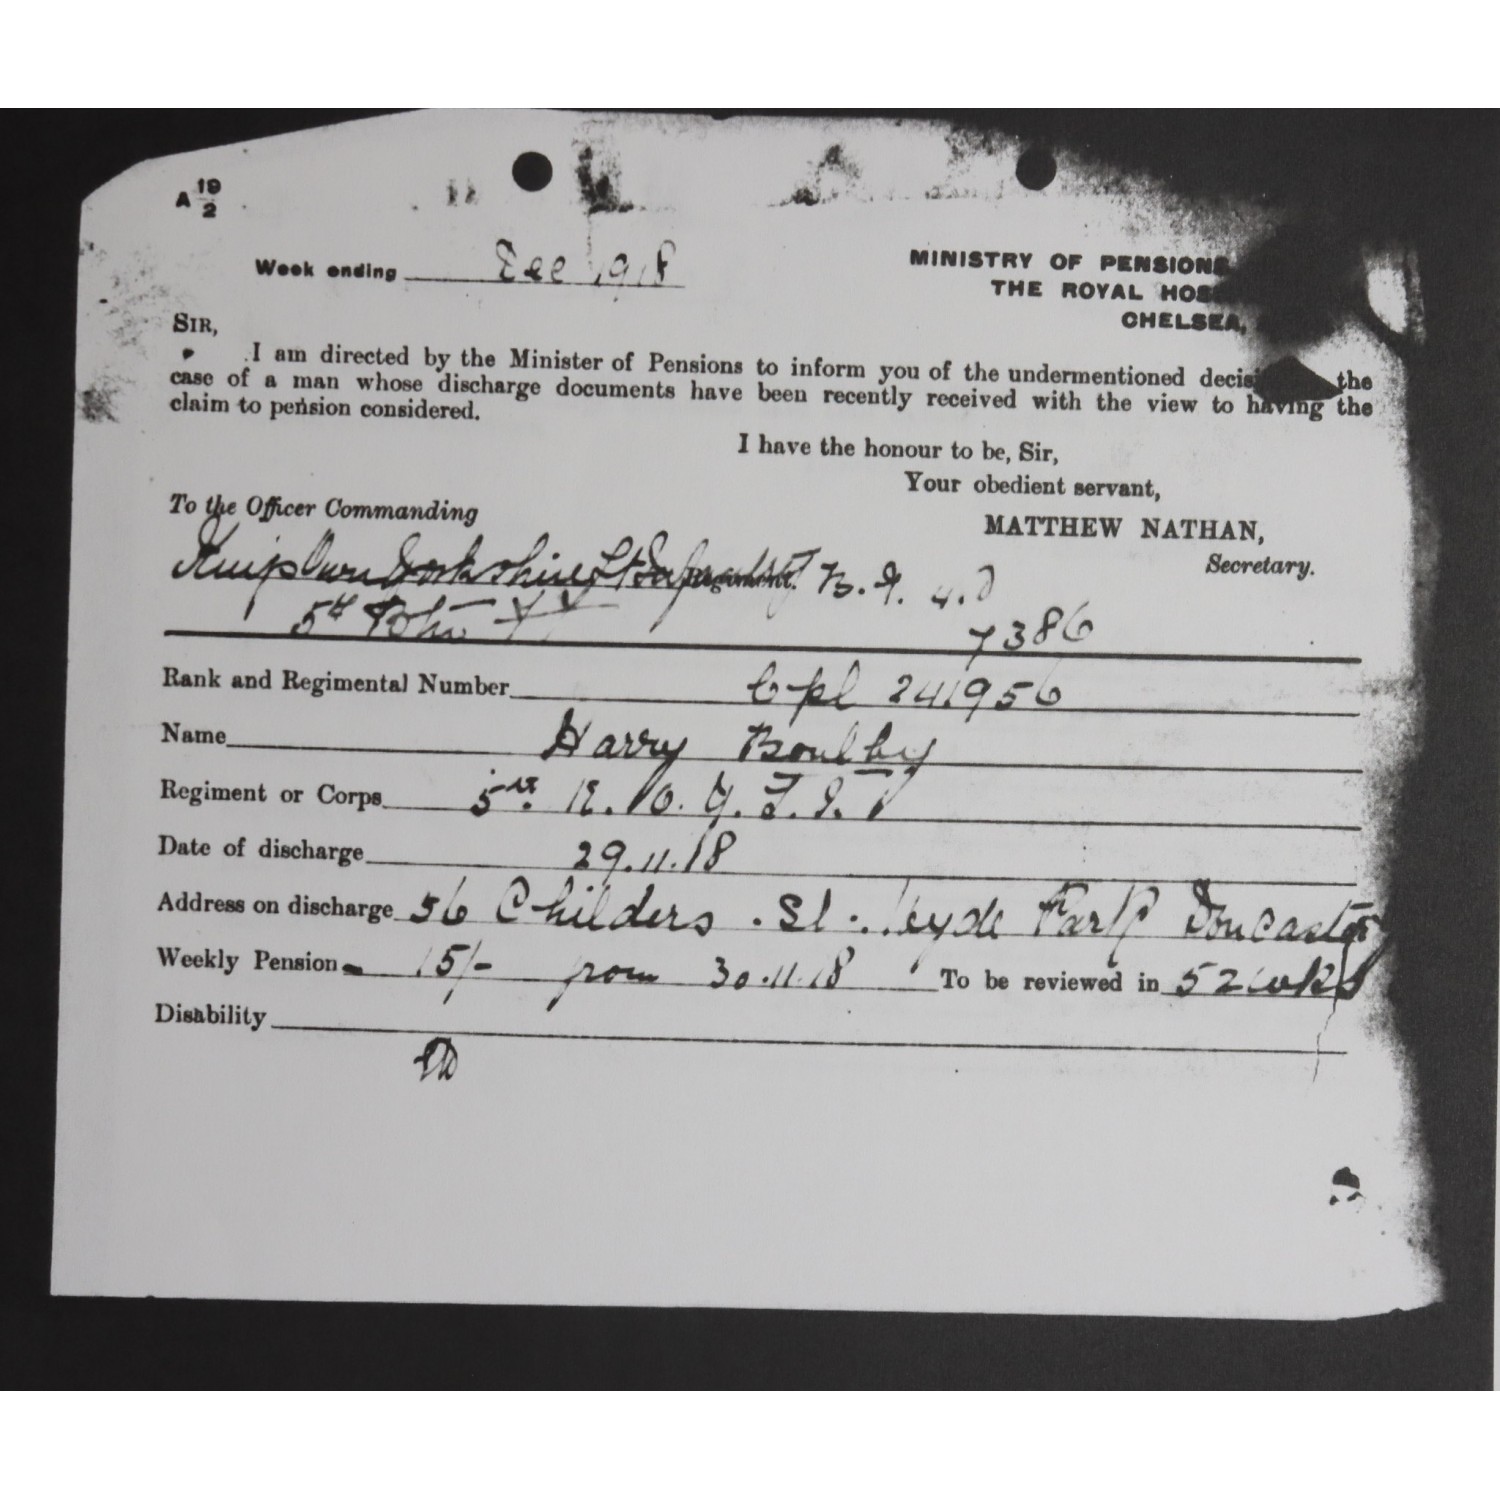 A 19/2
Week ending Dec 1918
MINISTRY OF PENSIONS,
THE ROYAL HOS
CHELSEA,
SIR,
I am directed by the Minister of Pensions to inform you of the undermentioned decis the
case of a man whose discharge documents have been recently received with the view to having the
claim to pension considered.
I have the honour to be, Sir,
Your obedient servant,
MATTHEW NATHAN,
Secretary.
To the Officer Commanding
Kings Own Yorkshire Lt Infantry
5th
7386
Rank and Regimental Number Cpl 241956
Name Harry Boulby
Regiment or Corps 5th K. O. Y. L. I.
Date of discharge 29.11.18
Address on discharge 56 Childers St. Hyde Park Doncaster
Weekly Pension 15/- from 30.11.18 To be reviewed in 52 wks
Disability